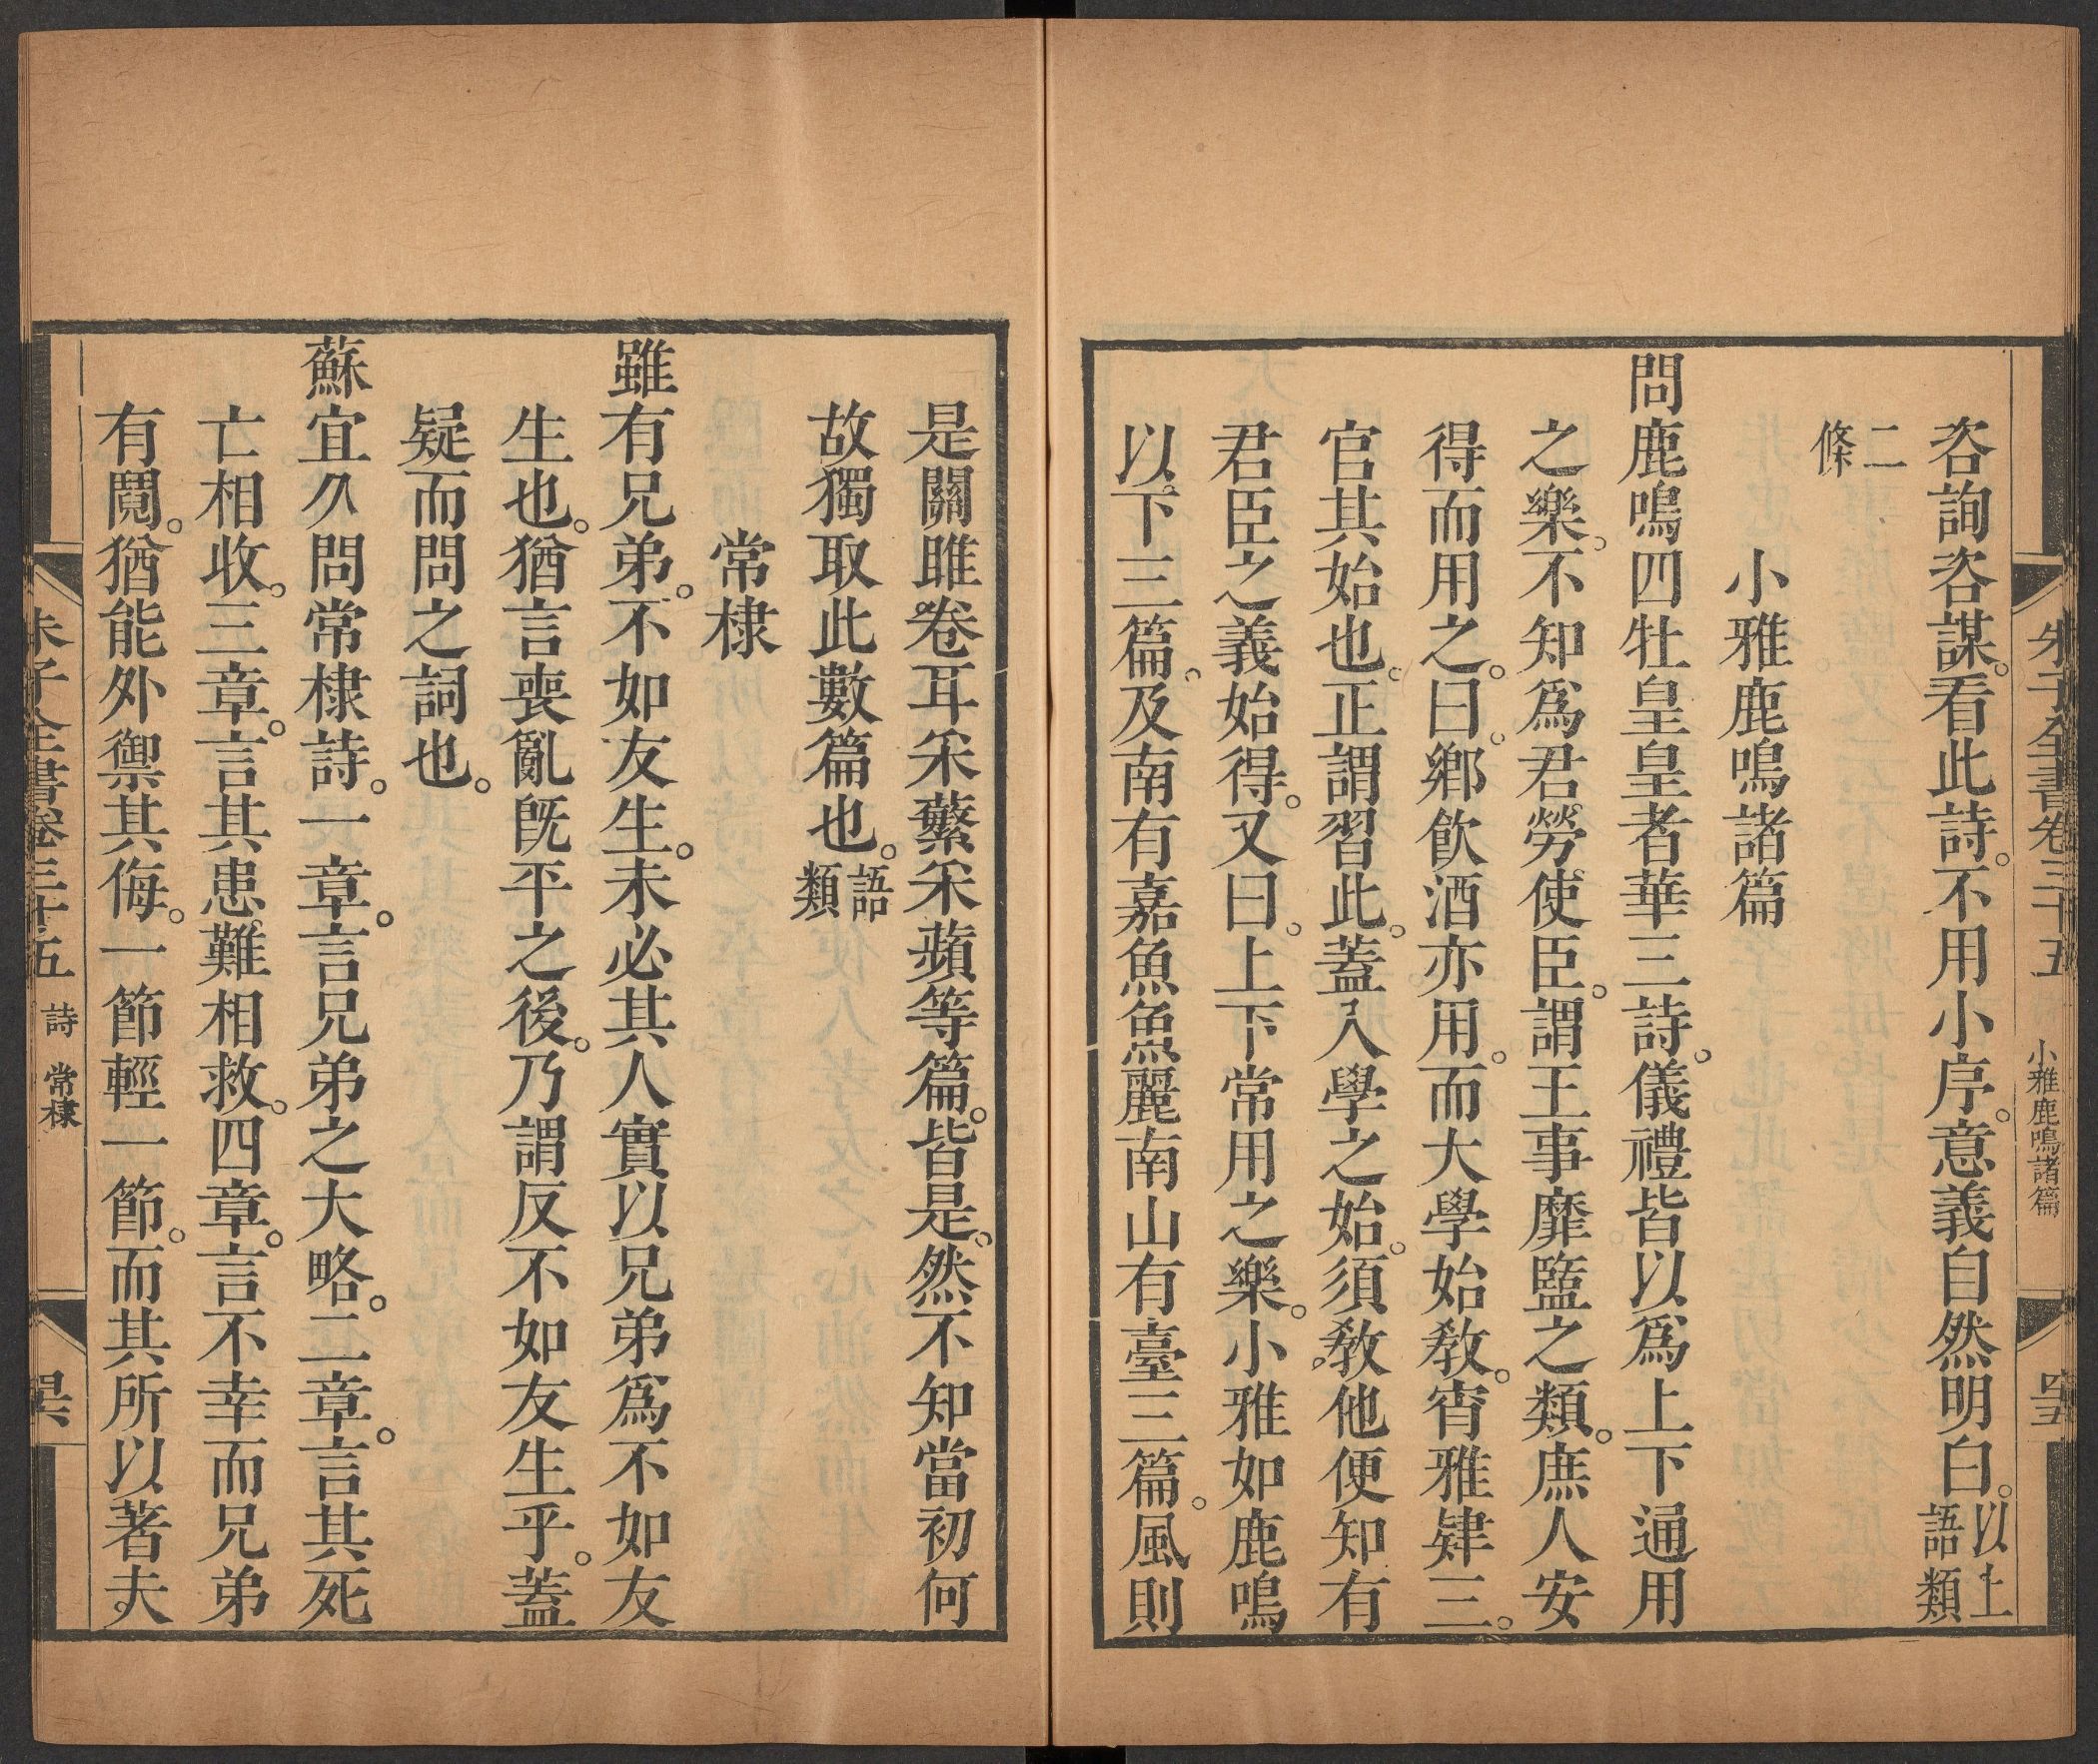 朱子全書卷三十五 小雅鹿鳴諸篇 四五
咨詢咨謀。看此詩。不用小序。意義自然明白。以上語類
二條
小雅鹿鳴諸篇
問鹿鳴四牡皇皇者華三詩。儀禮皆以爲上下通用
之樂。不知爲君勞使臣。謂王事靡盬之類。庶人安
得而用之。曰。鄉飮酒亦用。而大學始敎。宵雅肄三。
官其始也。正謂習此。蓋入學之始。須敎他便知有
君臣之義始得。又曰。上下常用之樂。小雅如鹿鳴
以下三篇。及南有嘉魚魚麗南山有臺三篇。風則
是關雎卷耳采蘩采蘋等篇。皆是。然不知當初何
故獨取此數篇也。語類
常棣
雖有兄弟。不如友生。未必其人實以兄弟爲不如友
生也。猶言喪亂旣平之後。乃謂反不如友生乎。蓋
疑而問之詞也。
蘇宜久問常棣詩。一章。言兄弟之大略。二章。言其死
亡相收。三章。言其患難相救。四章。言不幸而兄弟
有鬩。猶能外禦其侮。一節輕一節。而其所以著夫
朱子全書卷三十五 詩 常棣